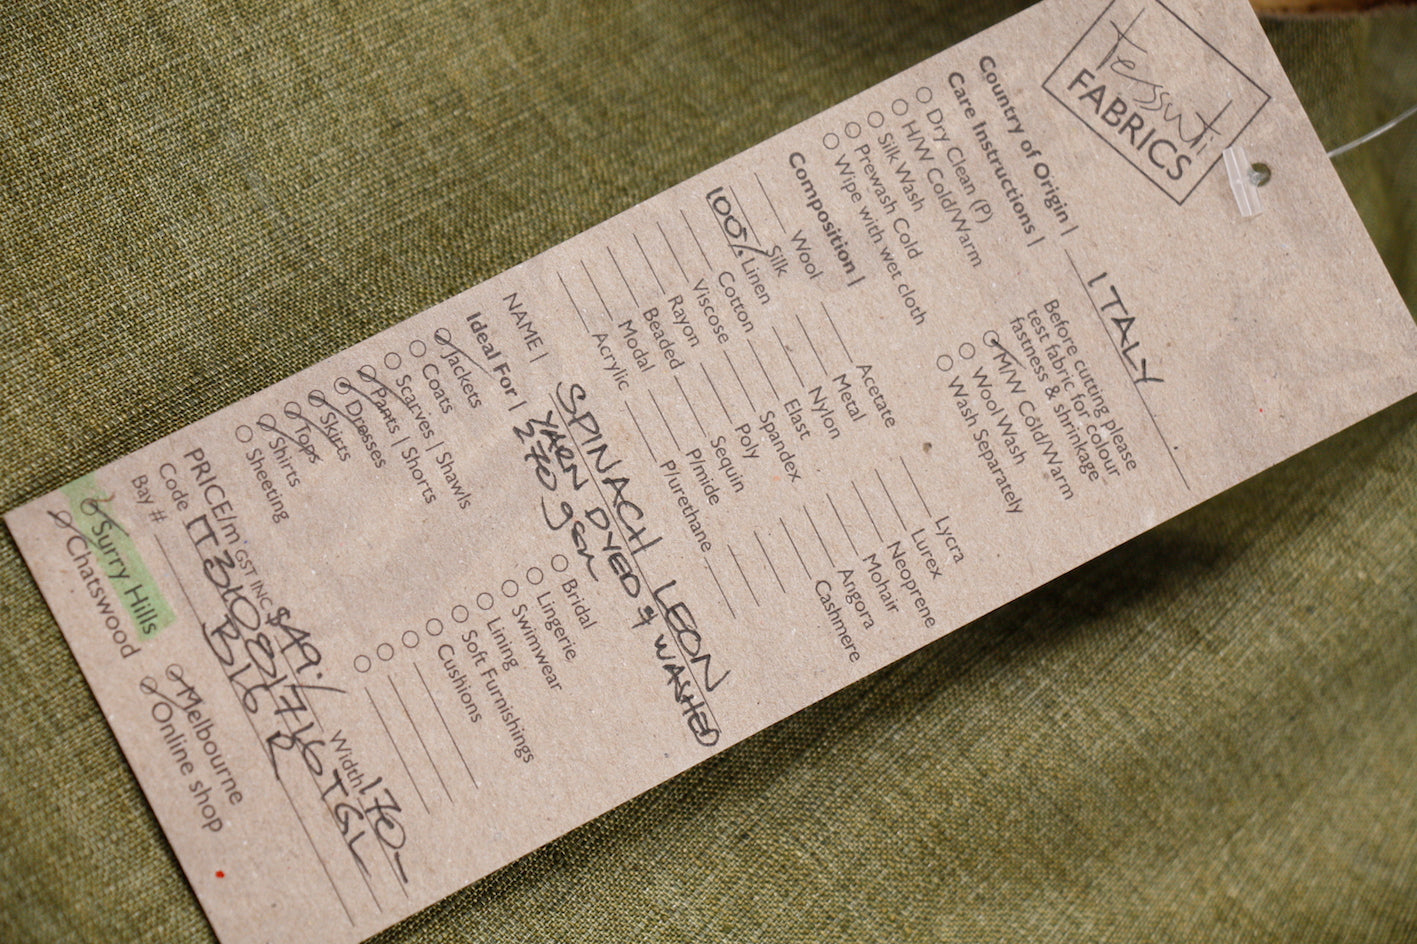 tessuti
FABRICS
Country of Origin | ITALY
Care Instructions |
Dry Clean (P)
H/W Cold/Warm
Silk Wash
Prewash Cold
Wipe with wet cloth
Before cutting please
test fabric for colour
fastness & shrinkage
M/W Cold/Warm
Wool Wash
Wash Separately
Composition |
Wool
Silk
100% Linen
Cotton
Viscose
Rayon
Beaded
Modal
Acrylic
Acetate
Metal
Nylon
Elast
Spandex
Poly
Sequin
P/mide
P/urethane
Lycra
Lurex
Neoprene
Mohair
Angora
Cashmere
NAME | SPINACH LEON
YARN DYED & WASHED
270 gsm
Ideal For |
Jackets
Coats
Scarves | Shawls
Pants | Shorts
Dresses
Skirts
Tops
Shirts
Sheeting
Bridal
Lingerie
Swimwear
Lining
Soft Furnishings
Cushions
PRICE/m GST INC $49./ Width 170-
Code
Bay #
Surry Hills
Chatswood
Melbourne
Online shop